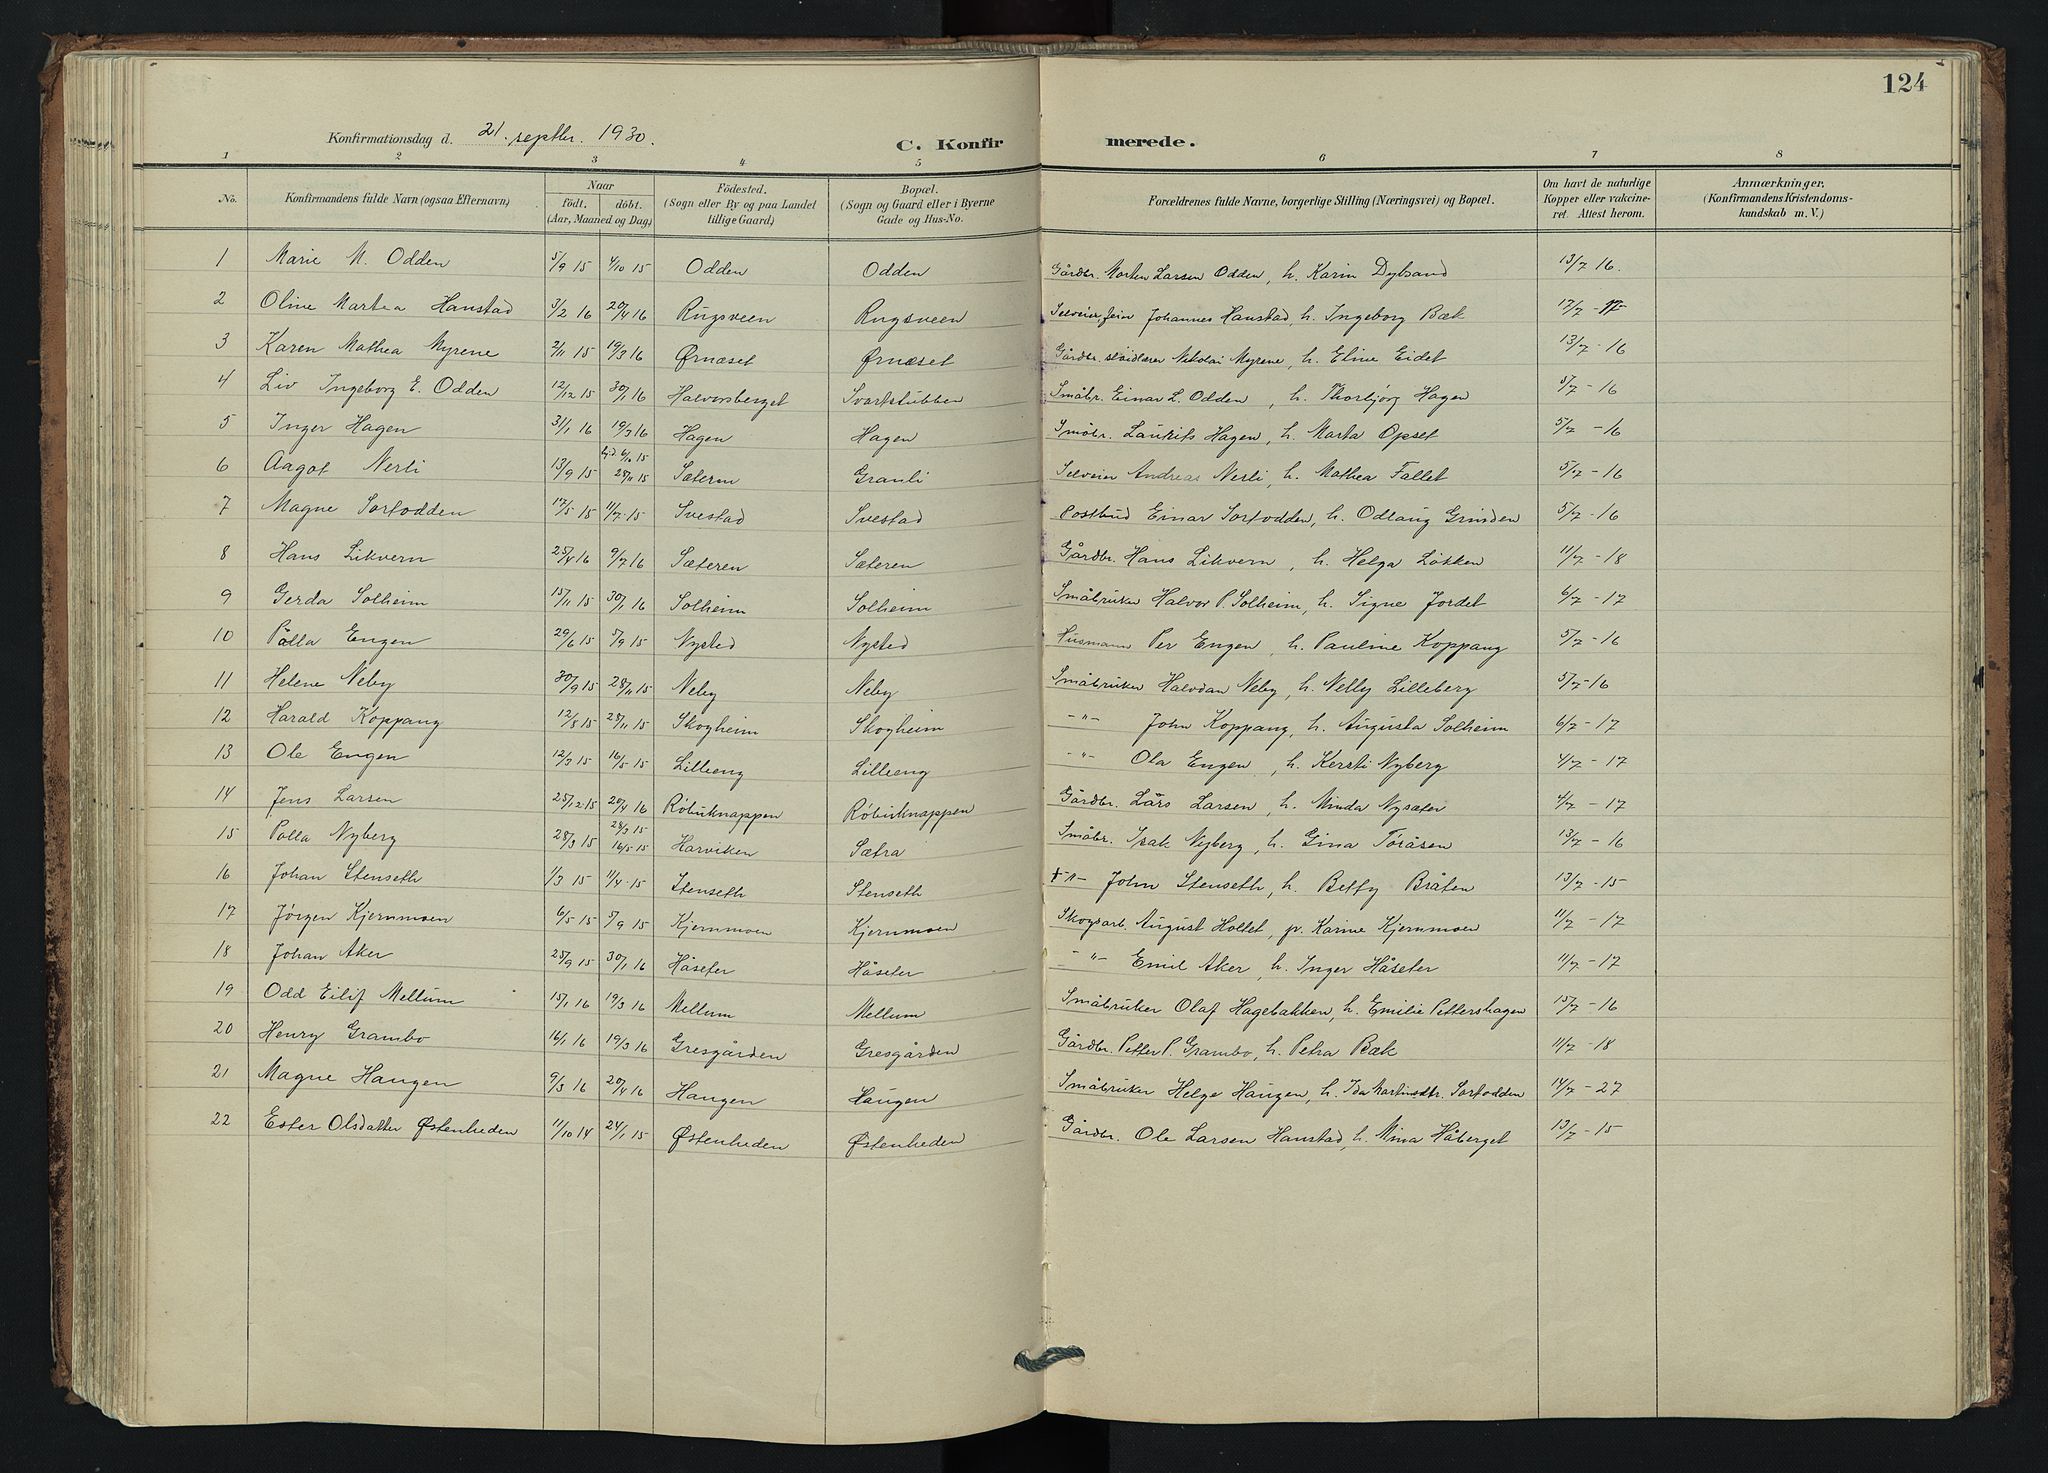 124
Konfirmationsdag d. 21. septbr. 1930.
C. Konfir merede.
1 2 3 4 5 6 7 8
No. Konfirmandens fulde Navn (ogsaa Efternavn) Naar født. døbt. (Aar, Maaned og Dag) Fødested. (Sogn eller By og paa Landet tillige Gaard) Bopæl. (Sogn og Gaard eller i Byerne Gade og Hus-No. Forældrenes fulde Navne, borgerlige Stilling (Næringsvei) og Bopæl. Om havt de naturlige Kopper eller vakcineret. Attest herom. Anmærkninger. (Konfirmandens Kristendomskundskab m. V.)
1 Marie M. Odden 5/9 15 4/10 15 Odden Odden Gårdbr. Morten Larsen Odden, h. Karin Dybsand 13/7 16.
2 Oline Martea Hanstad 3/2 16 20/4 16 Rugsveen Rugsveen Selveier, feier Johannes Hanstad, h. Ingeborg Bæk 17/7 - 17
3 Karen Mathea Myrene 2/11 15 19/3 16 Ørnæset Ørnæset Gårdbr. Nikolai Myrene, h. Eline Eidet 13/7 - 16
4 Liv Ingeborg E. Odden 12/12 15 30/1 16 Halvorsberget Svartstubben Småbr. Einar L. Odden, h. Thorbjørg Hagen 5/7 - 16
5 Inger Hagen 31/1 16 19/3 16 Hagen Hagen Småbr. Laurits Hagen, h. Marta Opset 5/7 - 16
6 Aagot Nerli 13/9 15 hjd 6/10 15 28/11 15 Sæteren Granli Selveier Andreas Nerli, h. Mathea Fallet 5/7 - 16
7 Magne Sorfodden 17/5 15 11/7 15 Svestad Svestad Postbud Einar Sorfodden, h. Odlaug Grinden 5/7 - 16
8 Hans Likvern 25/4 16 9/7 16 Sæteren Sæteren Gårdbr. Hans Likvern, h. Helga Løkken 11/7 - 18
9 Gerda Solheim 15/11 15 30/1 16 Solheim Solheim Småbruker Halvor P. Solheim, h. Signe Jordet 6/7 - 17
10 Palla Engen 29/6 15 5/9 15 Nysted Nysted Husmann Per Engen, h. Pauline Koppang 5/7 - 16
11 Helene Neby 30/9 15 28/11 15 Neby Neby Småbruker Halvdan Neby, h. Nelly Lilleberg 5/7 - 16
12 Harald Koppang 12/8 15 28/11 15 Skogheim Skogheim -"- John Koppang, h. Augusta Solheim 6/7 - 17
13 Ole Engen 12/3 15 16/5 15 Lilleeng Lilleeng -"- Ola Engen, h. Kersti Nyberg 4/7 - 17
14 Jens Larsen 25/12 15 20/4 16 Røbuknappen Røbuknappen Gårdbr. Lars Larsen, h. Minda Nysæter 4/7 - 17
15 Palla Nyberg 28/3 15 28/3 15 16/5 15 Harviken Sætra Småbr. Isak Nyberg, h. Gina Toråsen 13/7 - 16
16 Johan Stenseth 1/3 15 11/4 15 Stenseth Stenseth -"- John Stenseth, h. Betty Bråten 13/7 - 15
17 Jørgen Kjernmoen 6/5 15 5/9 15 Kjernmoen Kjernmoen Skogsarb. August Holtet, pr. Karine Kjernmoen 11/7 - 17
18 Johan Aker 25/9 15 30/1 16 Håseter Håseter -"- Emil Aker, h. Inger Håseter 11/7 - 17
19 Odd Eilif Mellum 15/1 16 19/3 16 Mellum Mellum Småbruker Olaf Hagebakken, h. Emilie Pettershagen 15/7 - 16
20 Henry Grambo 16/1 16 19/3 16 Gresgården Gresgården Gårdbr. Petter P. Grambo, h. Petra Bæk 11/7 - 18
21 Magne Haugen 9/3 16 20/4 16 Haugen Haugen Småbruker Helge Haugen, h. Ida Martinsdtr. Sorfodden 14/7 - 27
22 Ester Olsdatter Østenheden 11/10 14 24/1 15 Østenheden Østenheden Gårdbr. Ole Larsen Hanstad, h. Mina Håberget 13/7 - 15